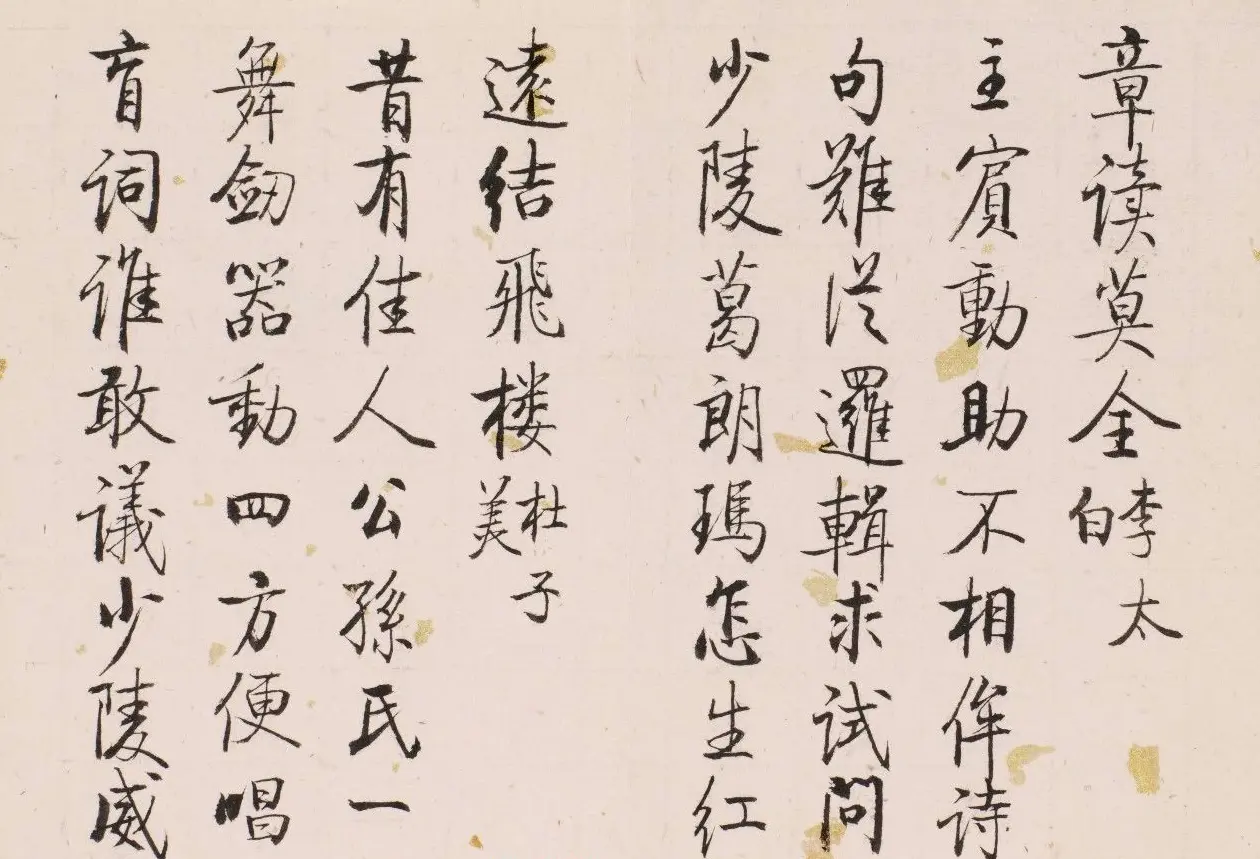 章读莫全李太白
主賓動助不相侔诗
句難從邏輯求试問
少陵葛朗瑪怎生红
遠结飛楼杜子美
昔有佳人公孫氏一
舞劔器動四方便唱
盲词谁敢議少陵威